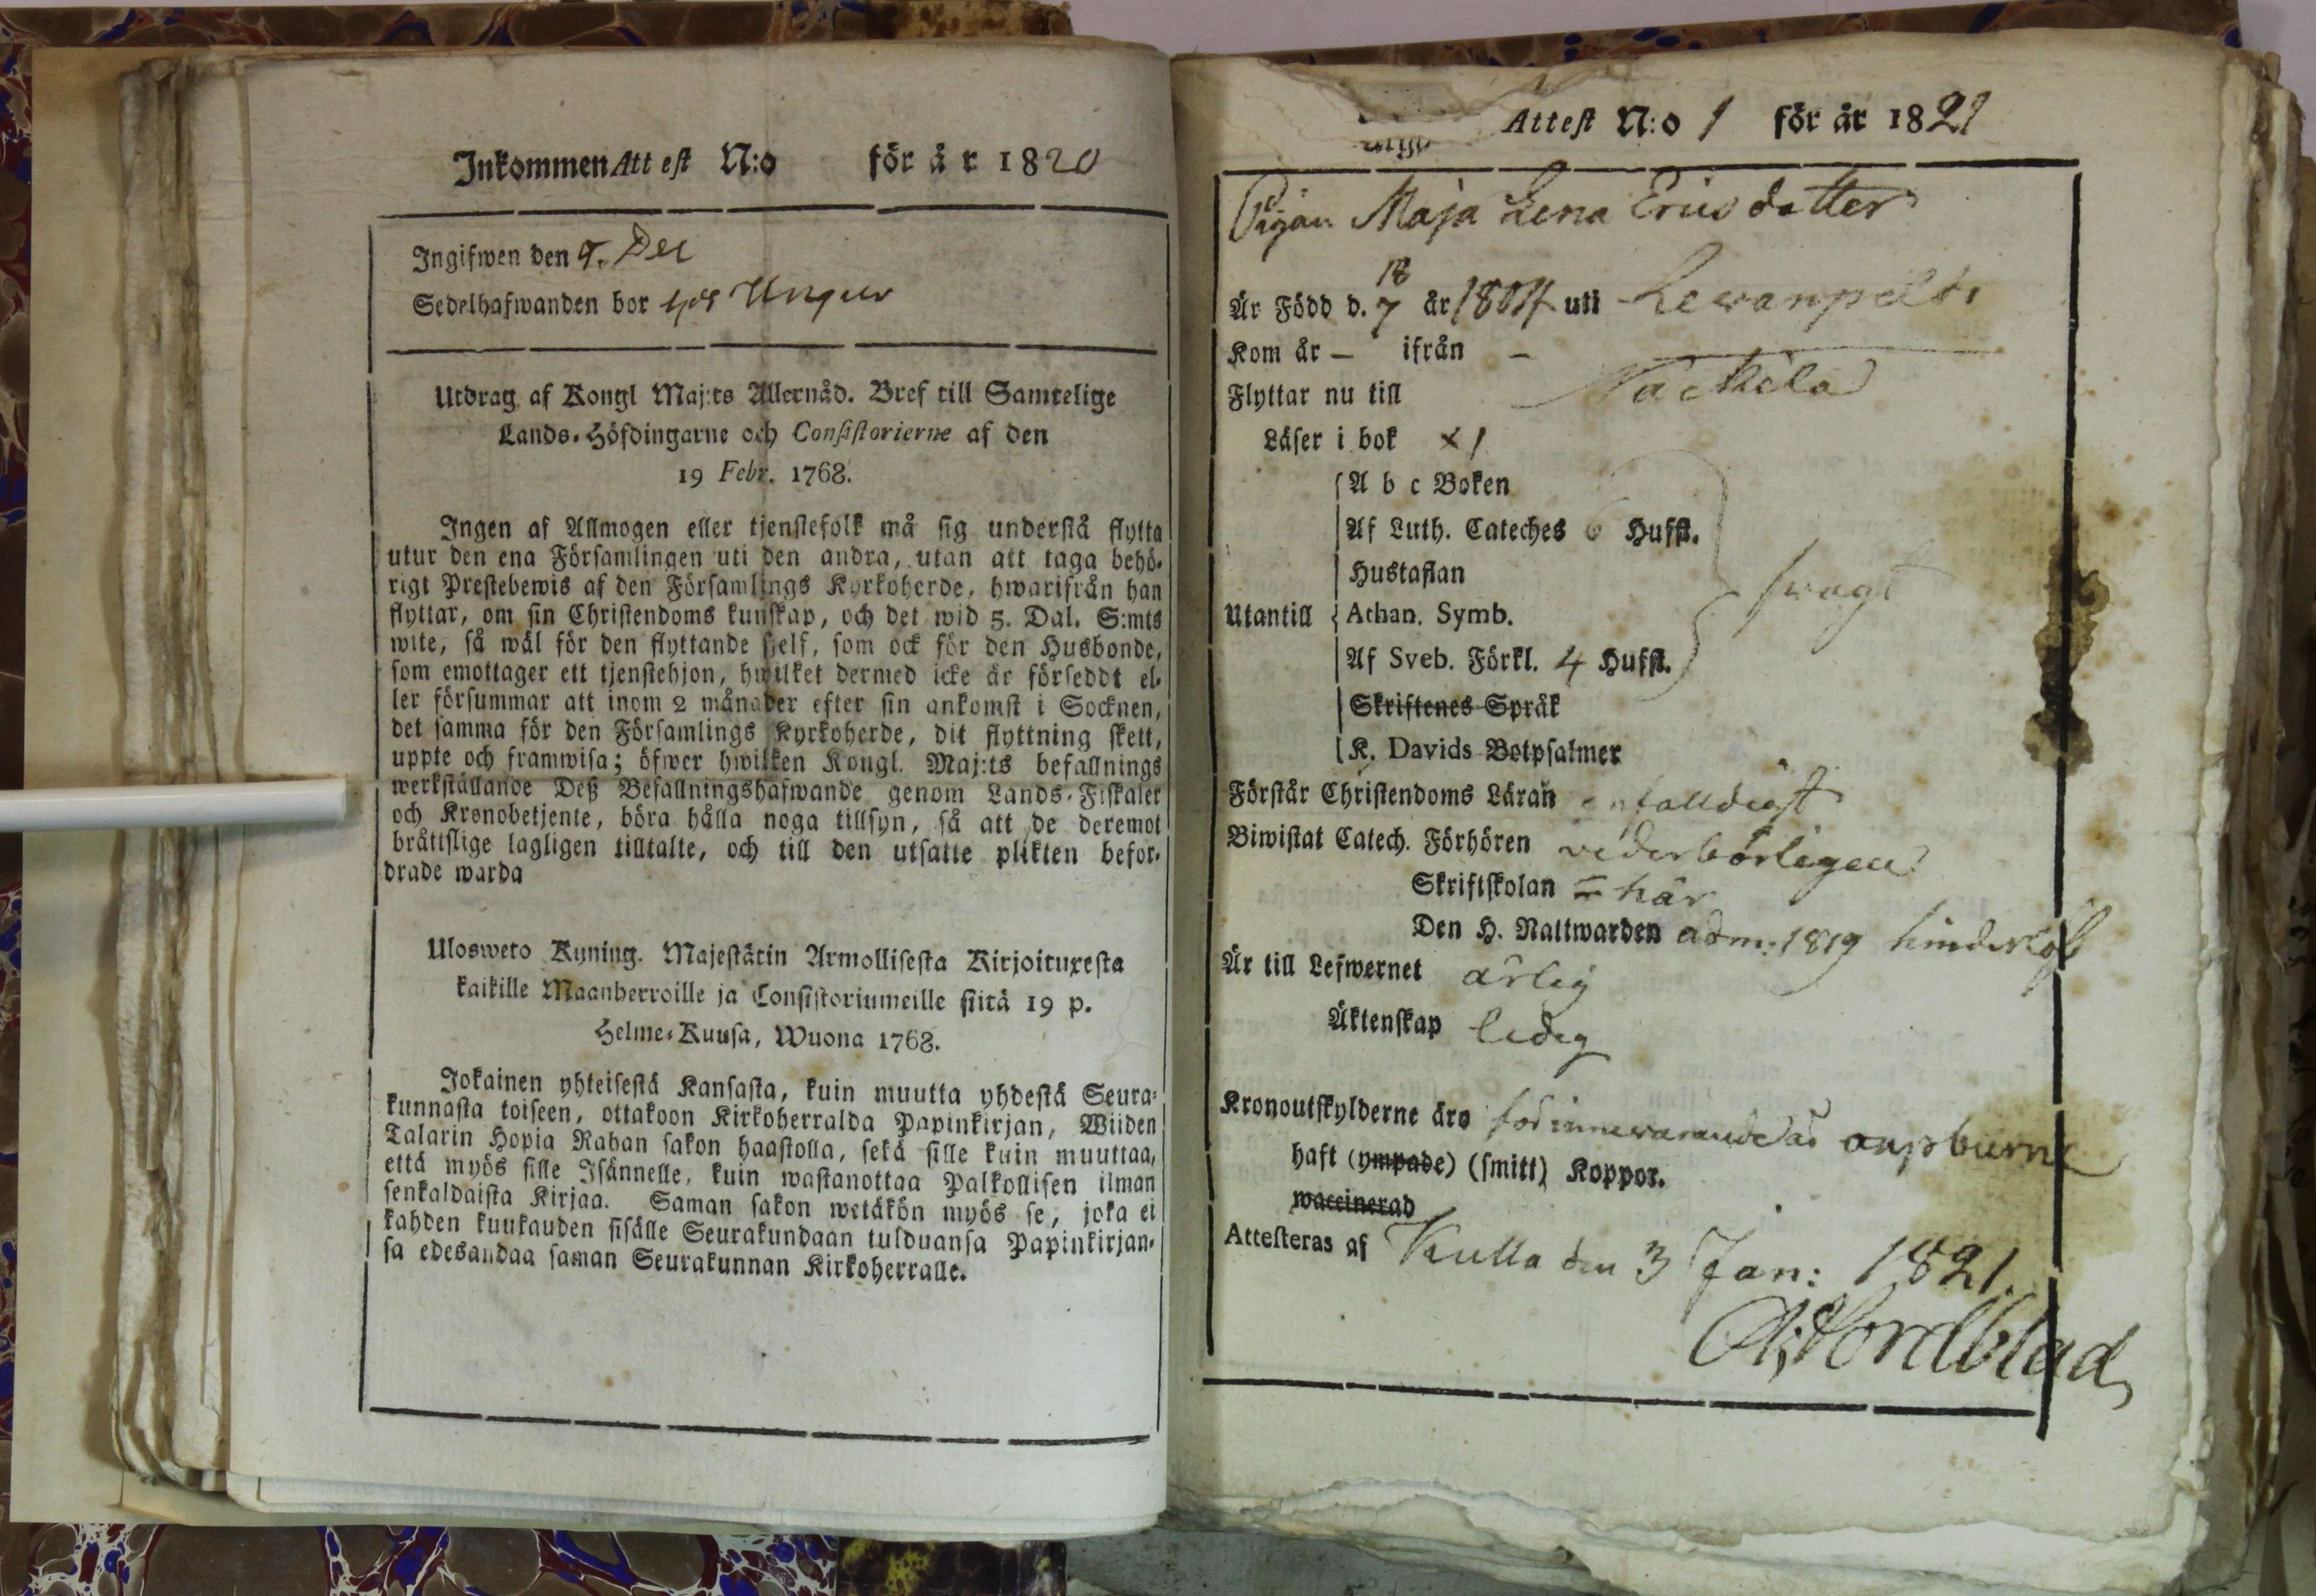 Inkommen Attest N:o för år 1820
Ingifwen den 9. Dec
Sedelhafwanden bor hos Ungur
Utdrag af Kongl Maj:ts Allernåd. Bref till Samtelige
Lands-Höfdingarne och Consistorierne af den
19 Febr. 1768.
Ingen af Allmogen eller tjenstefolk må sig understå flytta
utur den ena Församlingen uti den andra, utan att taga behö-
rigt Prestebewis af den Församlings Kyrkoherde, hwarifrån han
flyttar, om sin Christendoms kunskap, och det wid 5. Dal. S:mts
wite, så wäl för den flyttande sjelf, som ock för den Husbonde,
som emottager ett tjenstehjon, hwilket dermed icke är förseddt el-
ler försummar att inom 2 månader efter sin ankomst i Socknen,
det samma för den Församlings Kyrkoherde, dit flyttning skett,
uppte och framwisa; öfwer hwilken Kongl. Maj:ts befallnings
werkställande Deß Befallningshafwande genom Lands-Fiskaler
och Kronobetjente, böra hålla noga tillsyn, så att de deremot
bråttslige lagligen tilltalte, och till den utsatte plikten befor-
drade warda
Ulosweto Kuning. Majestätin Armollisesta Kirjoituxesta
kaikille Maanherroille ja Consistoriumeille siitä 19 p.
Helme-Kuusa, Wuona 1768.
Jokainen yhteisestä Kansasta, kuin muutta yhdestä Seura-
kunnasta toiseen, ottakoon Kirkoherralda Papinkirjan, Wiiden
Talarin Hopia Rahan sakon haastolla, sekä sille kuin muuttaa,
että myös sille Isännelle, kuin wastanottaa Palkollisen ilman
senkaldaista Kirjaa. Saman sakon wetäkön myös se, joka ei
kahden kuukauden sisälle Seurakundaan tulduansa Papinkirjan-
sa edesandaa saman Seurakunnan Kirkoherralle.
Attest N:o 1 för år 1821
Pigan Maja Lena Ericsdotter
18
Är Född d. 7 år 1804 uti Lewanpelto
Kom år — ifrån —
Flyttar nu till Nackila
Läser i bok x 1
A b c Boken
Af Luth. Cateches 6 Hufst.
Hustaflan
Utantill Athan. Symb. swagt
Af Sveb. Förkl. 4 Hufst.
Skriftenes Språk
K. Davids Botpsalmer
Förstår Christendoms Läran enfalldigt
Biwistat Catech. Förhören wederbörligen
Skriftskolan = här
Den H. Nattwarden adm: 1819 hinderlös
Är till Lefwernet ärlig
Äktenskap ledig
Kronoutskylderne äro för innewarande år anpburne
haft (ympade) (smitt) Koppor.
waccinerad
Attesteras af Kulla den 3 Jan: 1821.
Nordblad